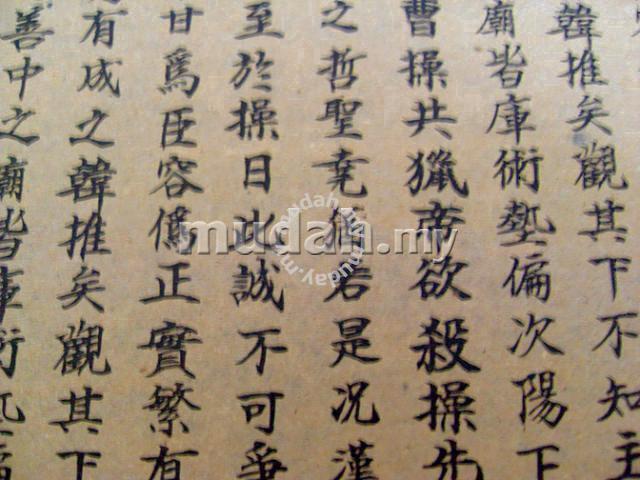 韓推矣觀其下不知主
廟皆庫術偏次陽下
曹操共獵帝欲殺操先
之哲聖堯猶若是況漢
至於操日此誠不可爭
甘爲臣容僞正實繁有
有成之韓推矣觀其下
善中之廟皆庫術
mudah.my